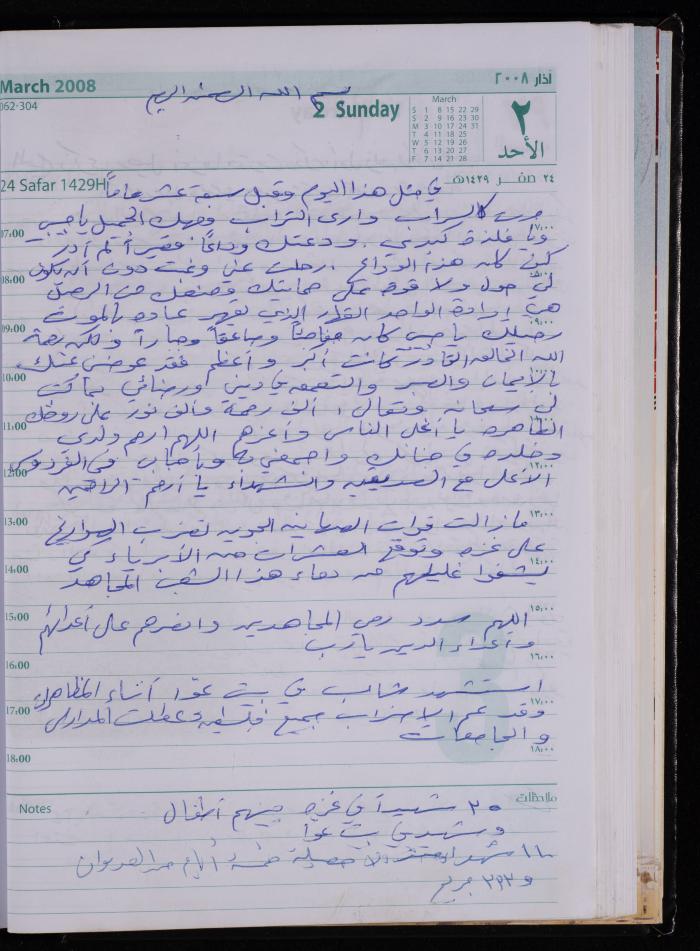 March 2008
اذار ٢٠٠٨
062-304
بسم الله الرحمن الرحيم
2 Sunday
March
S 1 8 15 22 29
S 2 9 16 23 30
M 3 10 17 24 31
T 4 11 18 25
W 5 12 19 26
T 6 13 20 27
F 7 14 21 28
٢
الأحد
24 Safar 1429H
٢٤ صفر ١٤٢٩هـ
في مثل هذا اليوم وقبل سبعة عشر عاماً
مرت كالسراب وارى التراب وجهك الجميل يا حبيبي
07:00
٧:٠٠
ويا فلذة كبدي. ودعتك وداعاً قصيراً لم أدر
كيف كان هذا الوداع. رحلت عني وغبت دون أن يكون
08:00
٨:٠٠
لي حول ولا قوة على حمايتك ومنعك من الرحيل
هي إرادة الواحد القهار الذي يقهر عباده بالموت
09:00
٩:٠٠
رحيلك يا حبيبي كان مفاجئاً وصاعقاً وصارماً ولكن رحمة
الله الخالق القادر كانت أكبر وأعظم فقد عوضني عنك
10:00
١٠:٠٠
بالإيمان والصبر والتعمق في ديني ورضائي بما كتب
لي سبحانه وتعالى، ألف رحمة وألف نور على روحك
11:00
١١:٠٠
الطاهرة يا أغلى الناس وأعزهم اللهم ارحم ولدي
وخلده في جنانك واجمعني به وبأحبابي في الفردوس
12:00
١٢:٠٠
الأعلى مع الصديقين والشهداء يا أرحم الراحمين
13:00
١٣:٠٠
ما زالت قوات الصهاينة الجوية تضرب الصواريخ
على غزة وتوقع العشرات من الأبرياء كي
14:00
١٤:٠٠
يشفوا غليلهم من دماء هذا الشعب المجاهد
15:00
١٥:٠٠
اللهم سدد رمي المجاهدين وانصرهم على أعدائهم
وأعداء الدين يا رب
16:00
١٦:٠٠
استشهد شاب في بيت عوا أثناء المظاهرات
17:00
١٧:٠٠
وقد عم الإضراب جميع فلسطين وعطلت المدارس
والجامعات
18:00
١٨:٠٠
Notes
ملاحظات
٢٥ شهيداً في غزة بينهم أطفال
وشهيد في بيت عوا
١١٠ شهداء حصيلة خمسة أيام من العدوان
و ٣٩٢ جريح